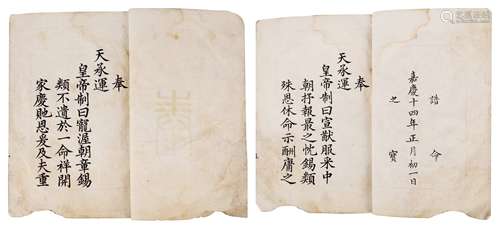 奉
天承運
皇帝制曰寵渥朝章錫
類不遺於一命祥開
家慶貤恩爰及夫重
奉
天承運
皇帝制曰宣猷服采中
朝抒報最之忱錫類
殊恩休命示酬庸之
誥命
嘉慶十四年正月初一日
之寶